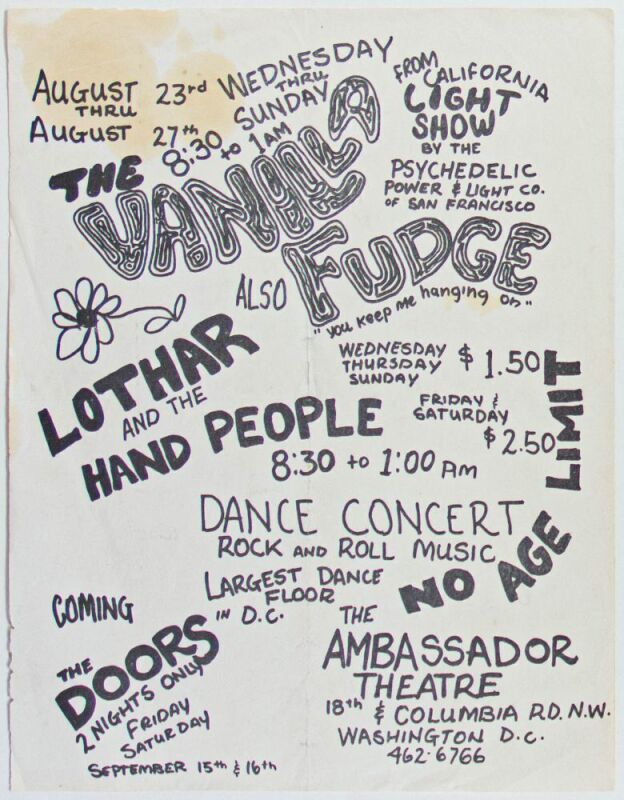 AUGUST 23rd
THRU
AUGUST 27th
WEDNESDAY
THRU
SUNDAY
8:30 to 1 AM
FROM CALIFORNIA
LIGHT
SHOW
BY THE
PSYCHEDELIC
POWER & LIGHT CO.
OF SAN FRANCISCO
THE
VANILLA
FUDGE
"YOU KEEP ME hanging on"
ALSO
LOTHAR
AND THE
HAND PEOPLE
WEDNESDAY
THURSDAY
SUNDAY
$ 1.50
FRIDAY &
SATURDAY
$ 2.50
8:30 to 1:00 AM
NO AGE LIMIT
DANCE CONCERT
ROCK AND ROLL MUSIC
LARGEST DANCE
FLOOR
IN D.C.
COMING
THE
DOORS
2 NIGHTS ONLY
FRIDAY
SATURDAY
SEPTEMBER 15th & 16th
THE
AMBASSADOR
THEATRE
18th & COLUMBIA RD. N.W.
WASHINGTON D.C.
462-6766